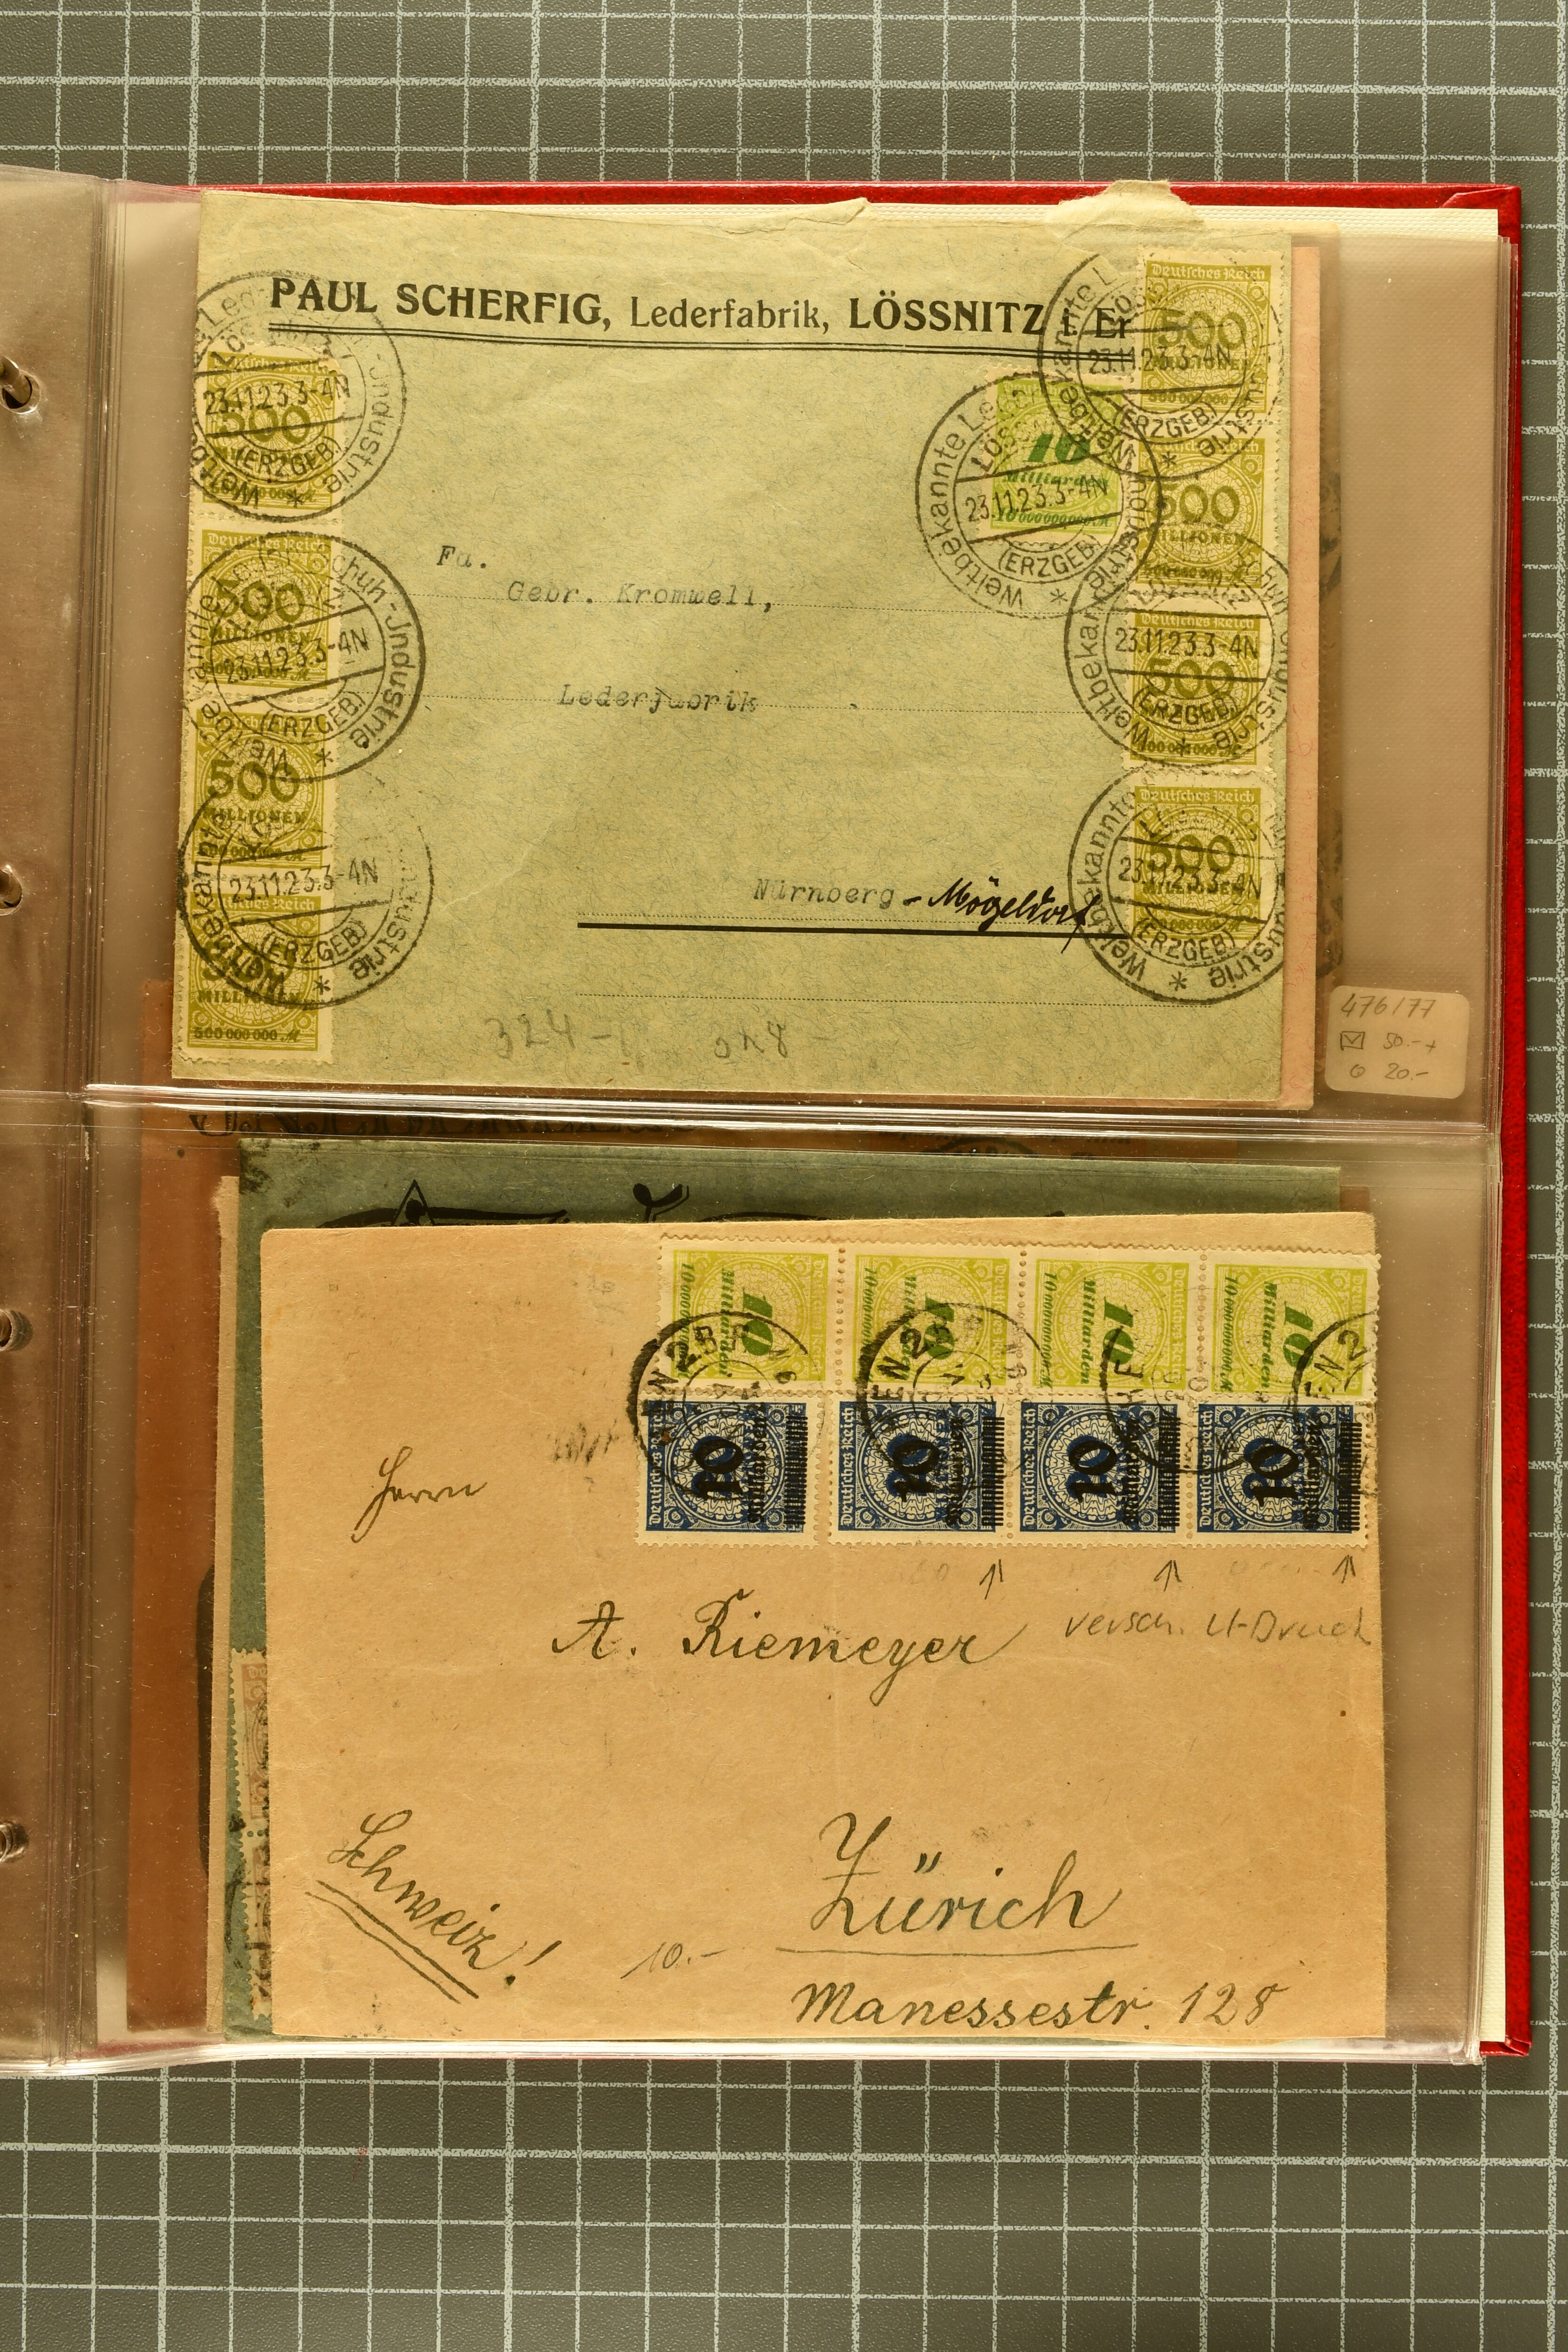 PAUL SCHERFIG, Lederfabrik, LÖSSNITZ i. Er
Deutsches Reich
500
MILLIONEN
500 000 000 M
10
Milliarden
10 000 000 000 M
Weltbekannte Leder
Schuh-Industrie
LÖSSNITZ
23.11.23.3-4N
(ERZGEB)
Fa.
Gebr. Kromwell,
Lederfabrik
Nürnberg - Mögeldorf
324-
476/77
50.-+
20.-
Deutsches Reich
10
Milliarden
10 000 000 000 M
Deutsches Reich
10
Milliarden
Herrn
A. Riemeyer
versch. U-Druck
Schweiz!
Zürich
10.-
Manessestr. 128